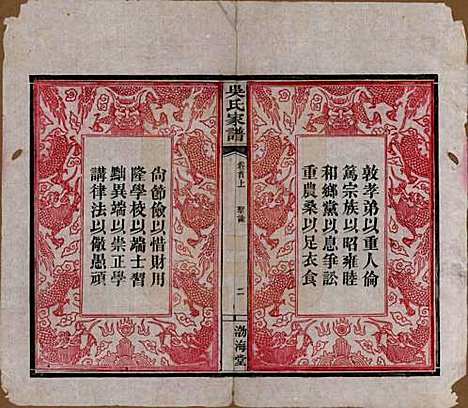 敦孝弟以重人倫
篤宗族以昭雍睦
和鄉黨以息爭訟
重農桑以足衣食
吳氏家譜
卷首上
聖諭
二
渤海堂
尚節儉以惜財用
隆學校以端士習
黜異端以崇正學
講律法以儆愚頑